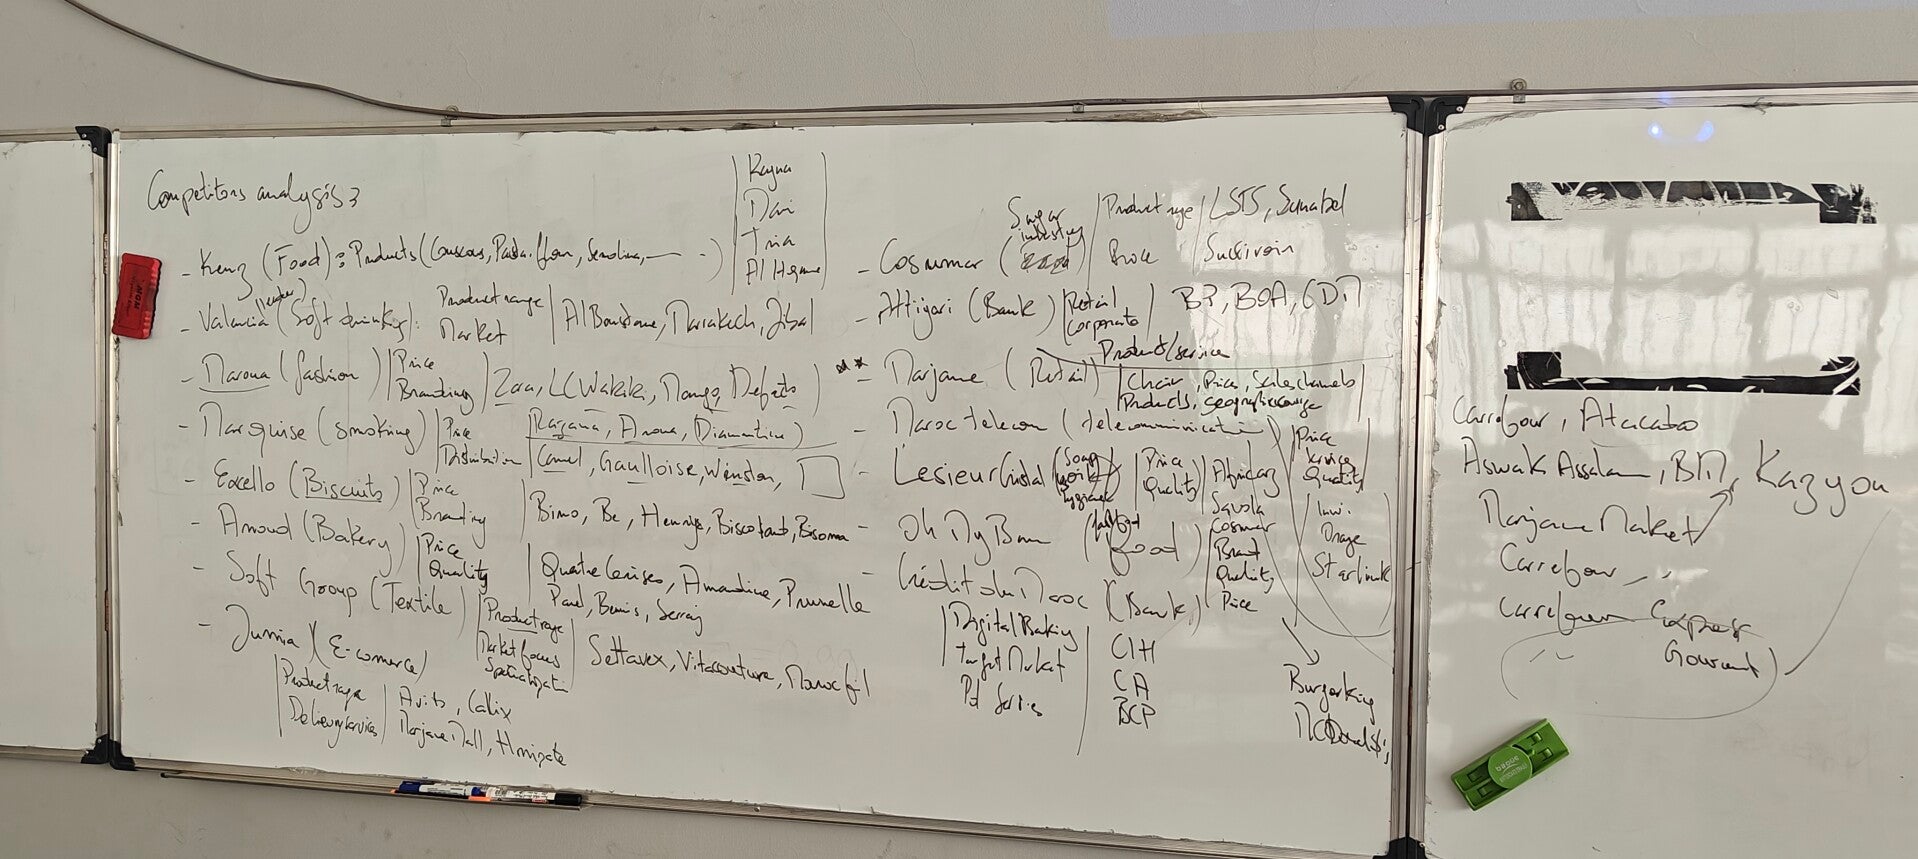 Competitors analysis:
Kayna
Dari
Tria
Al Hamra
- Kenz (Food): Products (Couscous, Pasta, flour, Semolina, — -)
(leader)
- Valencia (Soft drinks): Product range
Market
Al Boustane, Marrakech, Jibal
- Maroua (fashion) Price
Branding
Zara, LC Wakiki, Mango, Defacto
- Marquise (smoking) Price
Distribution
Gauloise, Winston,
Camel,
- Excello (Biscuits) Price
Branding
Bimo, Be, Henrys, Biscotant, Bisoma
- Amoud (Bakery) Price
Quality
Quatre Cerises, Amandine, Prunelle
Paul, Bennis, Serraj
- Soft Group (Textile) Product rage
Market focus
Specialization
Settavex, Vitacouture, Maroc fil
- Jumia (E-comerce)
Product rage
Delievry service
Avito, Calix
Marjane Mall, Hmizate
- Cosumar (
Sugar
industry
Product rage
Price
LSTS, Sunabel
- Attijari (Bank) Retail
Corporate
BP, BOA, CDM
Product/service
- Marjane (Retail)
Chair, Price, Sales channels
Products, Geographic coverage
- Maroc telecom (telecommunication) Price
Service
Quality
Inwi.
Orage
Starlink
- Lesieur Cristal (Soap
oil
hygiene
Price
Quality
Savola
Cosmar
- Oh My Bun (fast food) Brand
Quality
Price
Burgerking
McDonald's
- Crédit du Maroc (Bank)
Digital Baking
Target Market
CIH
CA
BCP
Carrefour, Atacadao
Aswak Assalam, BIM, Kazyon
Marjane Market
Carrefour
Carrefour Express
Gourmet)